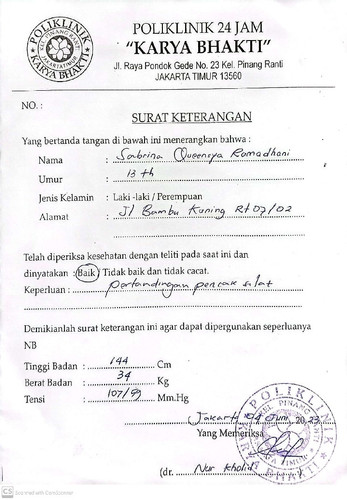 POLIKLINIK
KEL. PINANG RANTI
JAKARTA TIMUR
KARYA BHAKTI
POLIKLINIK 24 JAM
"KARYA BHAKTI"
Jl. Raya Pondok Gede No. 23 Kel. Pinang Ranti
JAKARTA TIMUR 13560
NO. :
SURAT KETERANGAN
Yang bertanda tangan di bawah ini menerangkan bahwa :
Nama : Sabrina Queensya Ramadhani
Umur : 13 th
Jenis Kelamin : Laki -laki / Perempuan
Alamat : Jl Bambu Kuning Rt 07/02
Telah diperiksa kesehatan dengan teliti pada saat ini dan
dinyatakan : Baik / Tidak baik dan tidak cacat.
Keperluan : pertandingan pencak silat
Demikianlah surat keterangan ini agar dapat dipergunakan seperluanya
NB
Tinggi Badan : 144 Cm
Berat Badan : 34 Kg
Tensi : 107/ Mm.Hg
Jakarta, Juni, 20
Yang Memeriksa
POLIKLINIK
KEL. PINANG RANTI
KARYA BHAKTI
(dr. Nur Kholid
CS